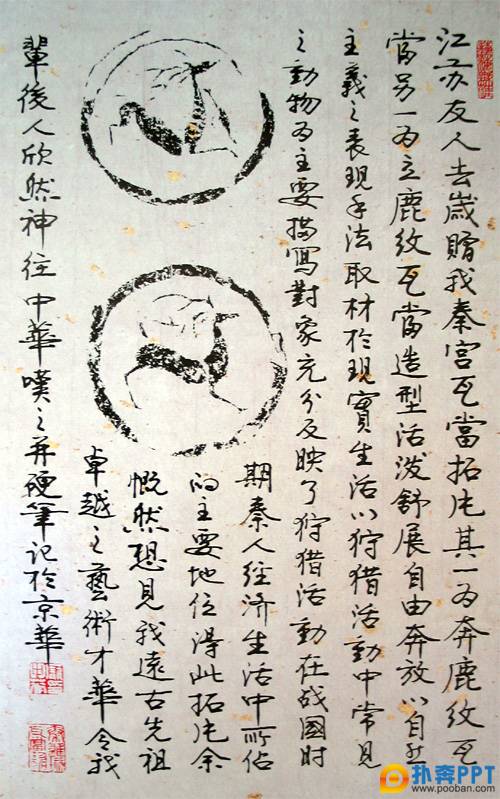 江苏友人去歲贈我秦宫瓦當拓片其一为奔鹿纹瓦
當另一为立鹿纹瓦當造型活泼舒展自由奔放以自然
主義之表現手法取材於現實生活以狩猎活動中常見
之動物为主要描寫對象充分反映了狩猎活動在战國时
期秦人经济生活中所佔
的主要地位得此拓片余
慨然想見我遠古先祖
卓越之藝術才華令我
輩後人欣然神往中華嘆之并硬筆記於京華
扑奔PPT
www.pooban.com